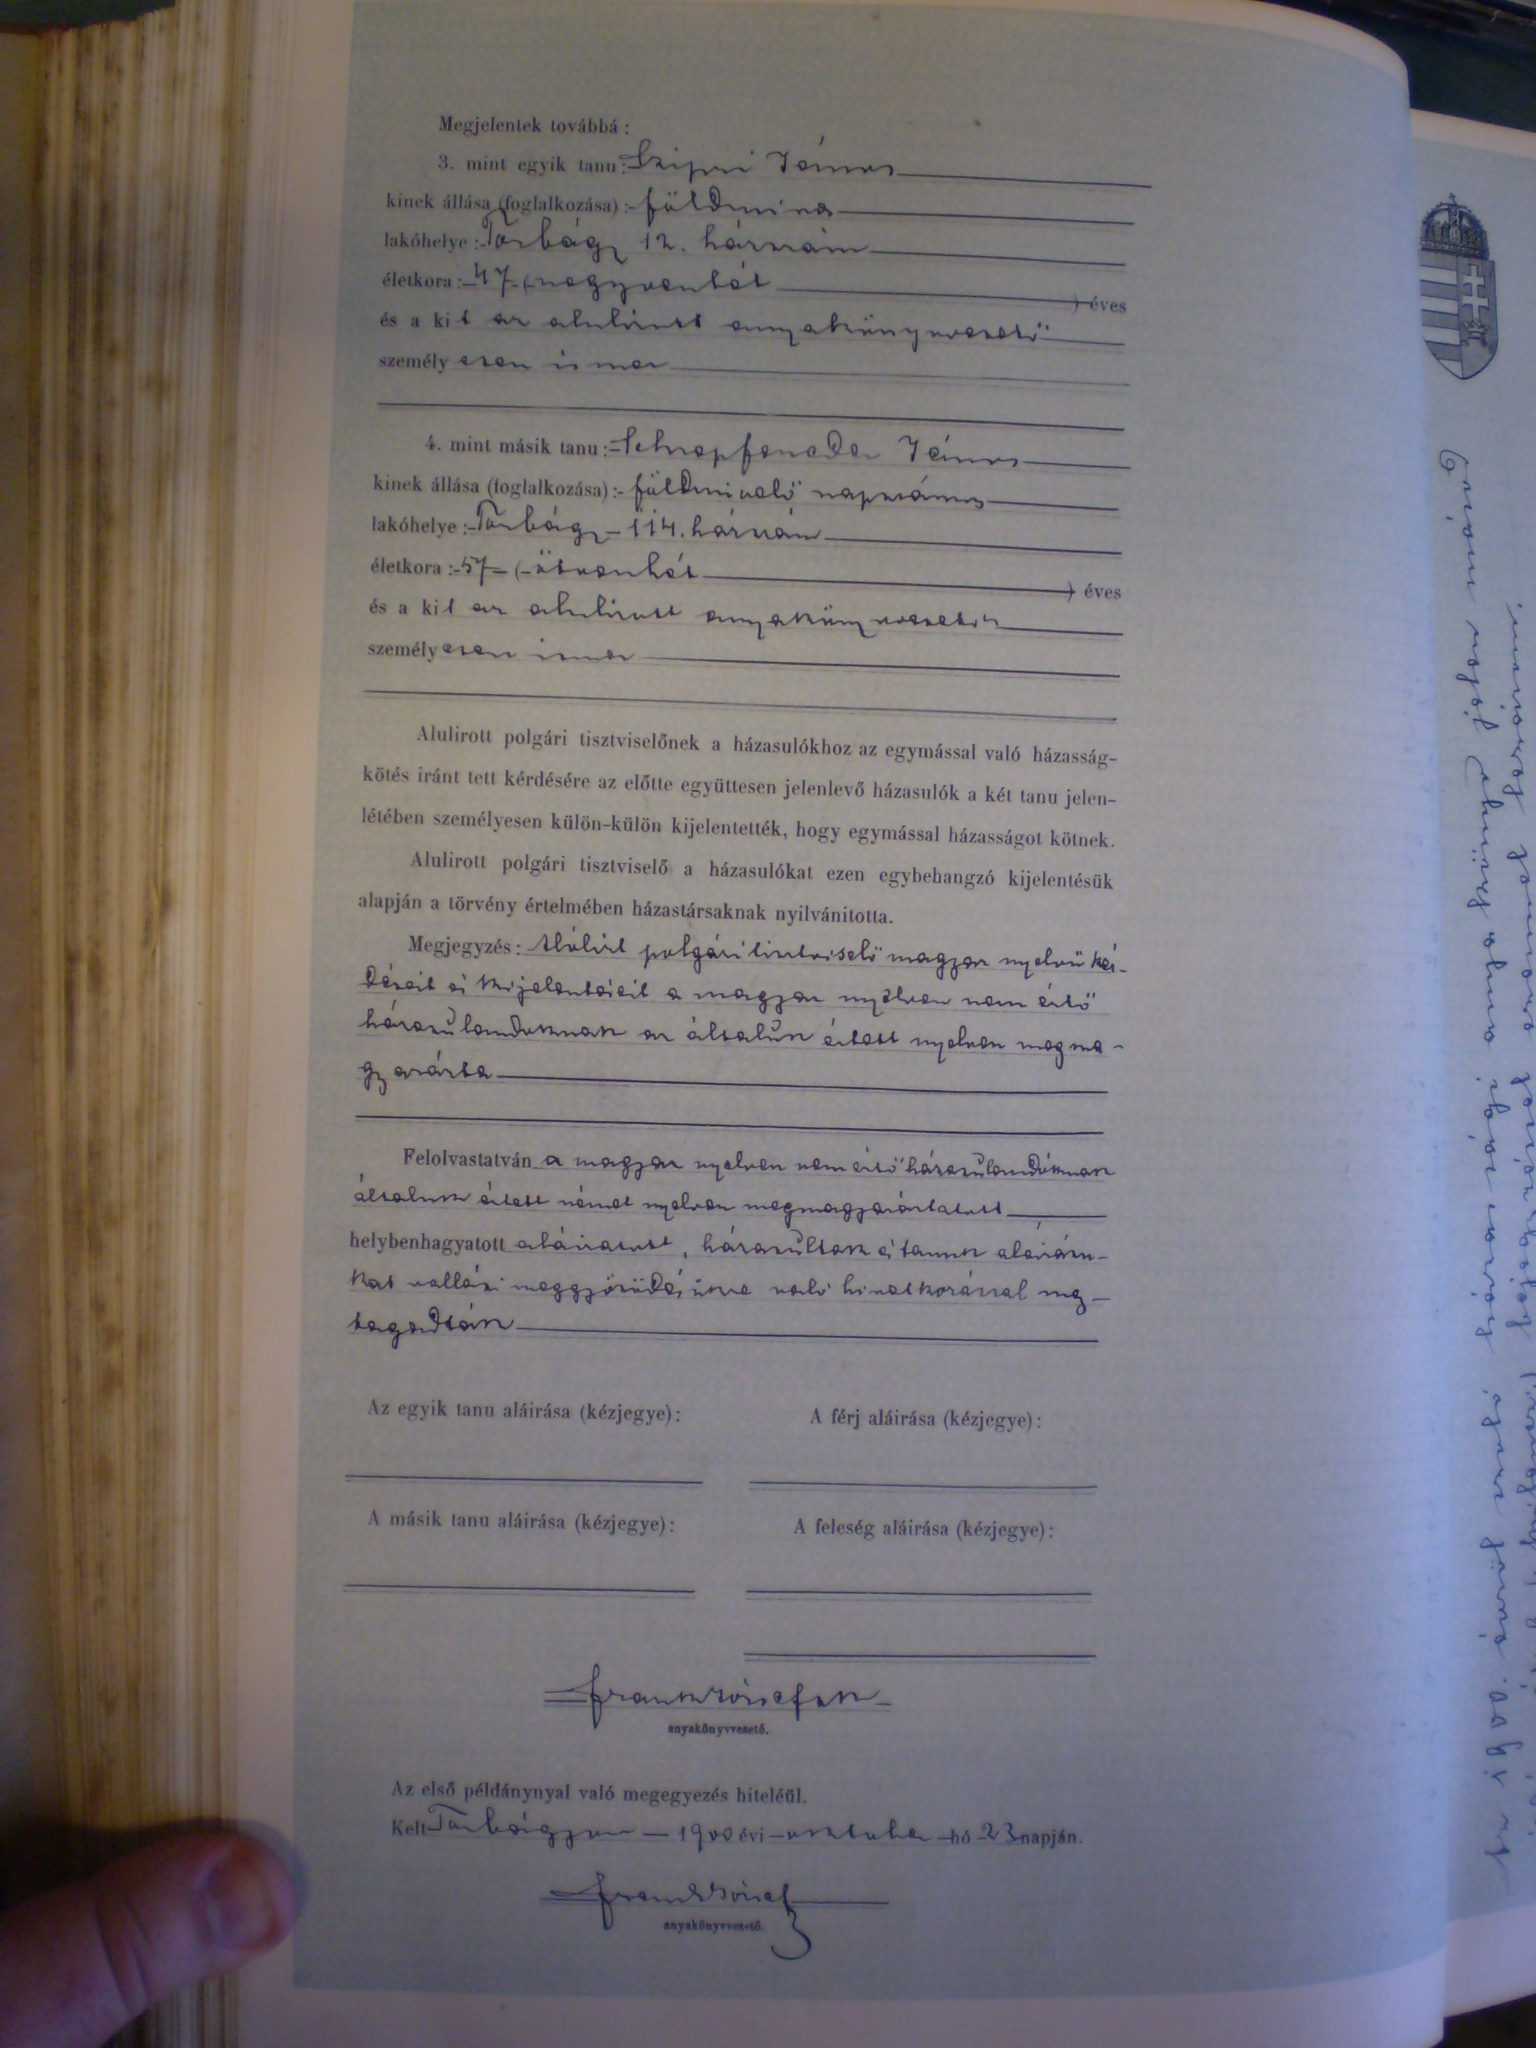 Megjelentek továbbá :
3. mint egyik tanu : Szipri János
kinek állása (foglalkozása) : földmives
lakóhelye : Torbágy 12. házszám
életkora : 47 (negyvenhét ) éves
és a kit az alulirott anyakönyvvezető
személyesen ismer
4. mint másik tanu : János
kinek állása (foglalkozása) : földmivelő napszámos
lakóhelye : Torbágy 114. házszám
életkora : 57 (ötvenhét ) éves
és a kit az alulirott anyakönyvvezető
személyesen ismer
Alulirott polgári tisztviselőnek a házasulókhoz az egymással való házasság-
kötés iránt tett kérdésére az előtte együttesen jelenlevő házasulók a két tanu jelen-
létében személyesen külön-külön kijelentették, hogy egymással házasságot kötnek.
Alulirott polgári tisztviselő a házasulókat ezen egybehangzó kijelentésük
alapján a törvény értelmében házastársaknak nyilvánitotta.
Megjegyzés : Alólirt polgári tisztviselő magyar nyelvű kér-
déseit és kijelentéseit a magyar nyelven nem értő
házasulandoknak az általuk értett nyelven megma-
gyarázta
Felolvastatván a magyar nyelven nem értő házasulandóknak
általuk értett német nyelven megmagyaráztatott
helybenhagyatott aláiratott, házasultak és tanuk aláirásu-
kat vallási meggyőződésükre való hivatkozással meg-
tagadták
Az egyik tanu aláirása (kézjegye) :
A férj aláirása (kézjegye) :
A másik tanu aláirása (kézjegye) :
A feleség aláirása (kézjegye) :
Frank József sk
anyakönyvvezető.
Az első példánynyal való megegyezés hiteléül.
Kelt Torbágyon 1900 évi oktober hó 23 napján.
Frank József
anyakönyvvezető.